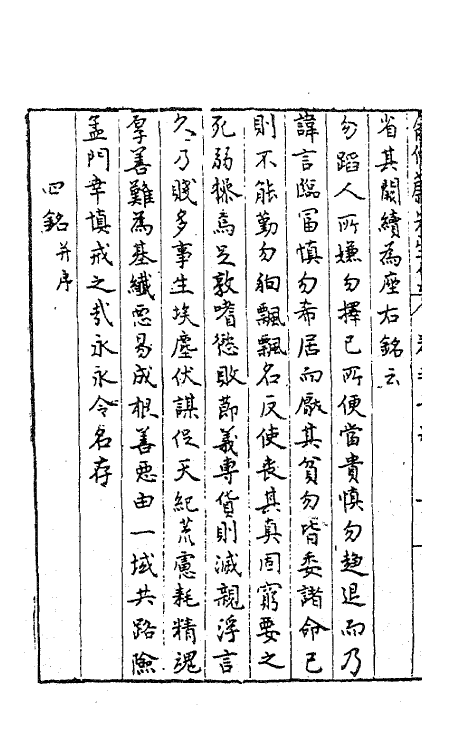 省其闕續為座右銘云
勿蹈人所嫌勿擇己所便當貴慎勿趨退而乃
諱言臨富慎勿希居而厭其貧勿皆委諸命己
則不能勤勿徇飄飄名反使喪其真固窮要之
死弱操焉足敦嗜慾敗節義專貨則滅親浮言
久乃賤多事生埃塵伏謀促天紀荒慮耗精魂
厚善難為基纖惡易成根善惡由一域共路險
孟門幸慎戒之哉永永令名存
四銘并序